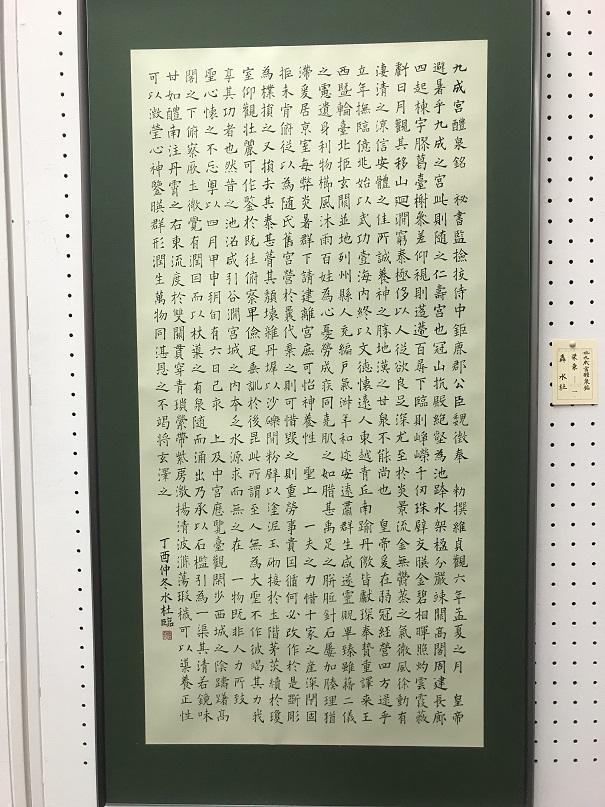 九成宮醴泉銘　祕書監撿挍侍中鉅鹿郡公臣魏徵奉　勅撰維貞觀六年孟夏之月　皇帝
避暑乎九成之宮此則隨之仁壽宮也冠山抗殿絶壑為池跨水架楹分巖竦闕高閣周建長廊
四起棟宇膠葛臺榭參差仰視則迢遰百尋下臨則崢嶸千仞珠璧交暎金碧相暉照灼雲霞蔽
虧日月觀其移山迴澗窮泰極侈以人從欲良足深尤至於炎景流金無鬱蒸之氣微風徐動有
淒清之涼信安體之佳所誠養神之勝地漢之甘泉不能尚也　皇帝爰在弱冠經營四方逮乎
立年撫臨億兆始以武功壹海內終以文德懷遠人東越青丘南踰丹徼皆獻琛奉贄重譯來王
西曁輪臺北拒玄闕並地列州縣人充編戶氣淑年和迩安遠肅群生咸遂靈貺畢臻雖藉二儀
之慮遺身利物櫛風沐雨百姓為心憂勞成疾同堯肌之如腊甚禹足之胼胝針石屢加腠理猶
滯爰居京室每弊炎暑群下請建離宮庶可怡神養性　聖上　一夫之力惜十家之產深閉固
拒未肯俯從以為隨氏舊宮營於曩代棄之則可惜毀之則重勞事貴因循何必改作於是斲彫
為樸損之又損去其泰甚葺其頹壞雜丹墀以沙礫間粉壁以塗泥玉砌接於土階茅茨續於瓊
室仰觀壯麗可作鑒於既往俯察卑儉足垂訓於後昆此所謂至人無為大聖不作彼竭其力我
享其功者也然昔之池沼咸引谷澗宮城之內本乏水源求而無之在　一物既非人力所致
聖心懷之不忘粵以四月甲申朔旬有六日己亥　上及中宮歷覽臺觀閑步西城之陰躊躇高
閣之下俯察厥土微覺有潤因而以杖導之有泉隨而涌出乃承以石檻引為一渠其清若鏡味
甘如醴南注丹霄之右東流度於雙闕貫穿青瑣縈帶紫房激揚清波滌蕩瑕穢可以導養正性
可以澂瑩心神鑒暎群形潤生萬物同湛恩之不竭將玄澤之　丁酉仲冬水杜臨